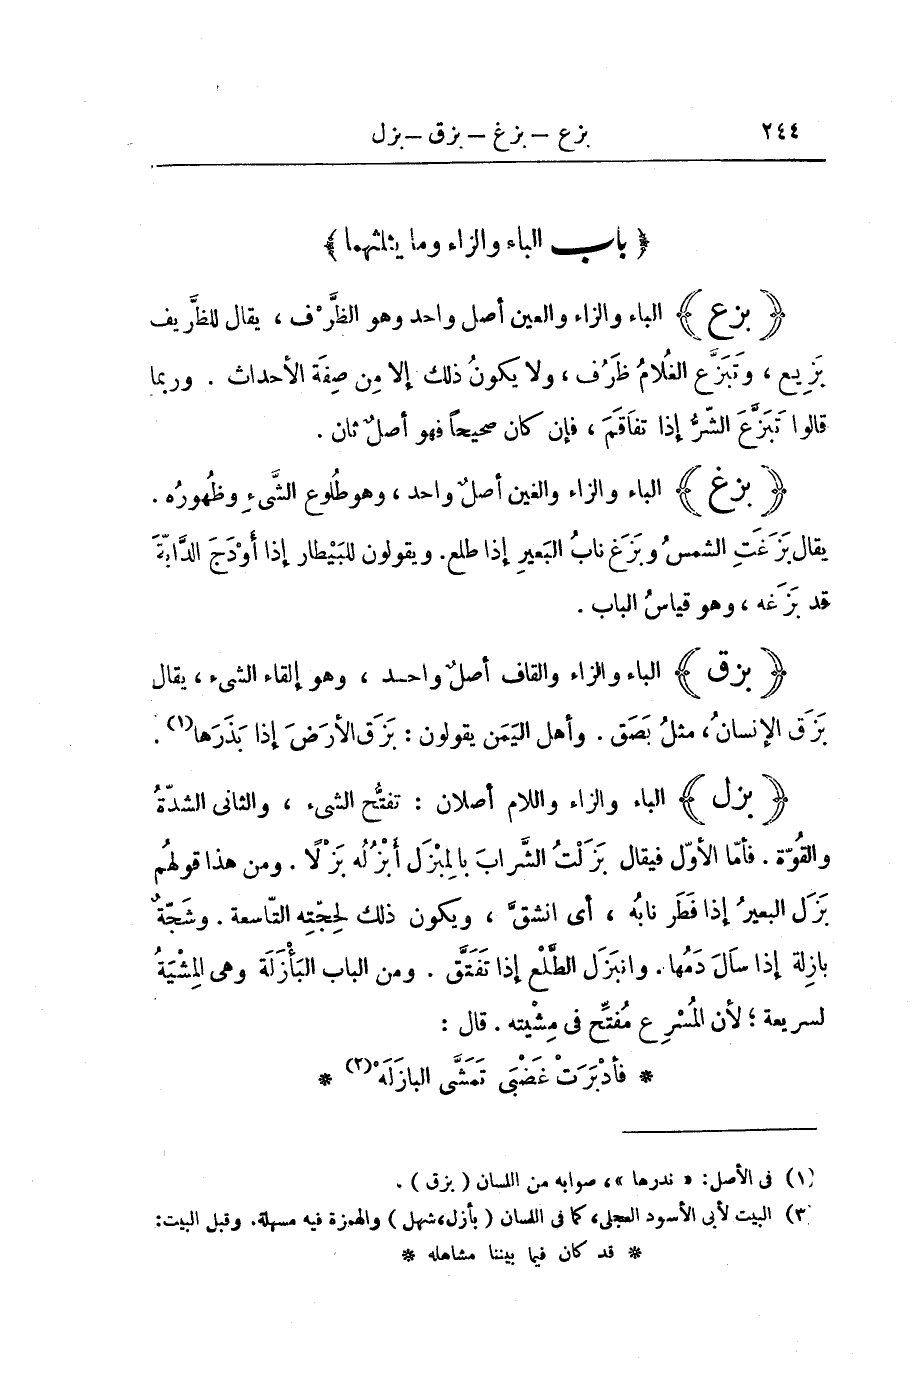 ٢٤٤ بزع – بزغ – بزق – بزل
﴿ باب الباء والزاء وما يثلثهما ﴾
﴿ بزع ﴾ الباء والزاء والعين أصل واحد وهو الظَّرْف ، يقال للظَّريف
بَزِيع ، وتَبَزَّع الغُلامُ ظَرُف ، ولا يكونُ ذلك إلا مِن صِفَة الأحداث . وربما
قالوا تَبَزَّعَ الشّرُّ إذا تفاقَمَ ، فإن كان صحيحاً فهو أصلٌ ثان .
﴿ بزغ ﴾ الباء والزاء والغين أصلٌ واحد ، وهو طُلُوع الشَّىءِ وظُهورُه .
يقال بَزَغَتِ الشمسُ وبَزَغ نابُ البَعيرِ إذا طلع . ويقولون للبَيْطار إذا أَوْدَجَ الدَّابّةَ
قد بَزَغه ، وهو قياسُ الباب .
﴿ بزق ﴾ الباء والزاء والقاف أصلٌ واحـد ، وهو إلقاء الشىء ، يقال
بَزَق الإنسانُ ، مثلُ بَصَق . وأهل اليَمَن يقولون : بَزَق الأرضَ إذا بَذَرَها(١) .
﴿ بزل ﴾ الباء والزاء واللام أصلان : تفتُّح الشىء ، والثانى الشدّةُ
والقُوّة . فأمّا الأوّل فيقال بَزَلْتُ الشَّرابَ بالمِبْزَل أَبْزُلُه بَزْلًا . ومن هذا قولهُم
بَزَل البعيرُ إذا فَطَر نابُه ، أى انشقَّ ، ويكون ذلك لحِجّتِه التّاسعة . وشَجّةٌ
بازِلة إذا سالَ دَمُها . وانبَزَل الطَّلْع إذا تَفَتَّق . ومن الباب البَأْزَلَة وهى المِشْيَةُ
لسريعة ؛ لأن المُسْرِع مُفتِّح فى مِشْيته . قال :
* فأدْبَرَتْ غَضْبَى تَمَشَّى البازَلَهْ(٢) *
(١) فى الأصل : « ندرها » ، صوابه من اللسان ( بزق ) .
(٣) البيت لأبى الأسود العجلى ، كما فى اللسان ( بأزل ، شهل ) والهمزة فيه مسهلة . وقبل البيت :
* قد كان فيما بيننا مشاهله *